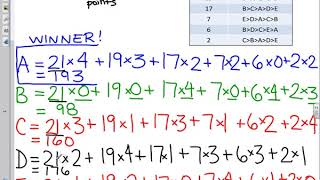 points
17 B>C>A>D>E
7 E>D>C>A>B
6 B>D>C>E>A
2 C>B>A>D>E
WINNER!
A = 21×4 + 19×3 + 17×2 + 7×2 + 6×0 + 2×2
= 193
B = 21×0 + 19×0 + 17×4 + 7×0 + 6×4 + 2×3
= 98
C = 21×3 + 19×1 + 17×3 + 7×1 + 6×2 + 2×4
= 160
D = 21×2 + 19×4 + 17×1 + 7×3 + 6×3 + 2×1
= 176